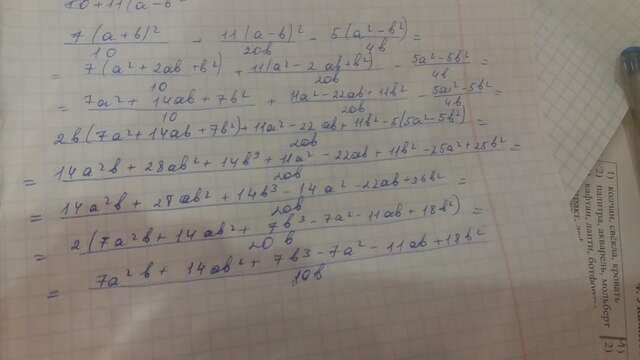 10+11(a-b
7(a+b)²/10 - 11(a-b)²/20b - 5(a²-b²)/4b =
= 7(a²+2ab+b²)/10 + 11(a²-2ab+b²)/20b - 5a²-5b²/4b =
= 7a²+14ab+7b²/10 + 11a²-22ab+11b²/20b - 5a²-5b²/4b =
2b(7a²+14ab+7b²)+11a²-22ab+11b²-5(5a²-5b²)/20b =
= 14a²b+28ab²+14b³+11a²-22ab+11b²-25a²+25b²/20b =
= 14a²b+28ab²+14b³-14a²-22ab+36b²/20b =
= 2(7a²b+14ab²+7b³-7a²-11ab+18b²)/20b =
= 7a²b+14ab²+7b³-7a²-11ab+18b²/10b
1) колчан, свёкла, кровать
2) палитра, акварель, мольберт